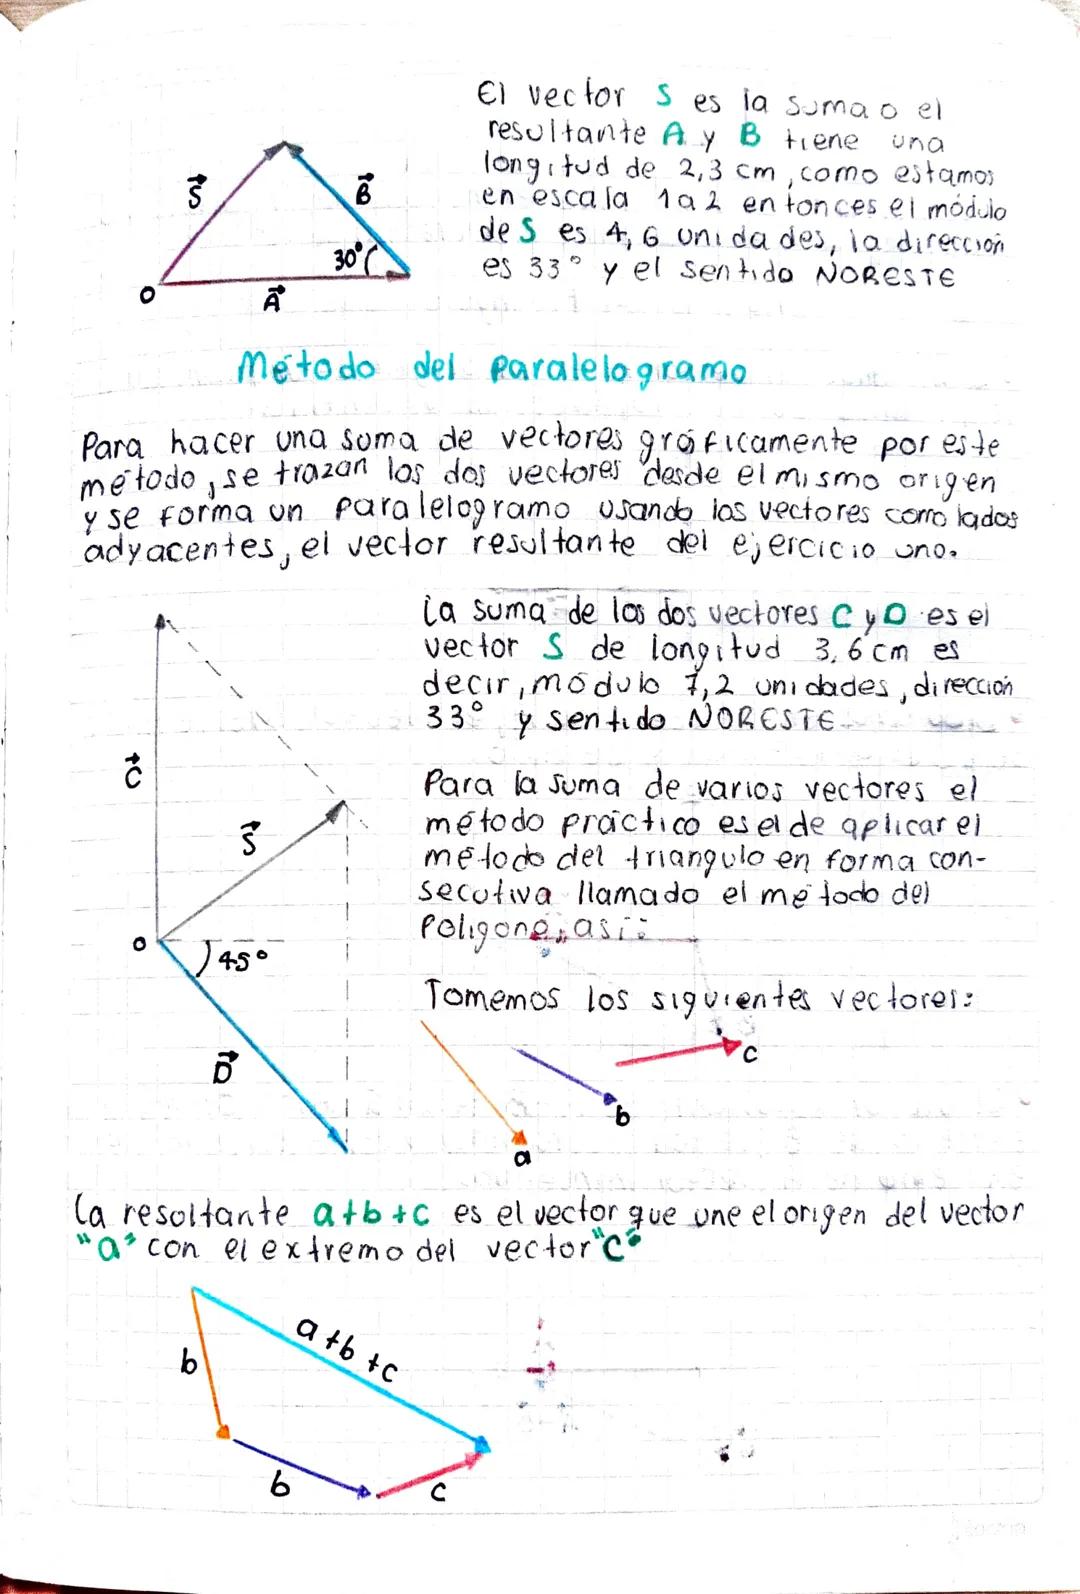 El vector S es la suma o el
resultante A y B tiene una
longitud de 2,3 cm, como estamos
en escala 1 a 2 entonces el módulo
de S es 4,6 unidades, la dirección
es 33° y el sentido NORESTE
S
B
30°
O
A
Método del paralelogramo
Para hacer una suma de vectores gráficamente por este
método, se trazan los dos vectores desde el mismo origen
y se forma un paralelogramo usando los vectores como lados
adyacentes, el vector resultante del ejercicio uno.
La suma de los dos vectores C y D es el
vector S de longitud 3,6 cm es
decir, módulo 7,2 unidades, dirección
33° y sentido NORESTE
C
S
O
45°
D
Para la suma de varios vectores el
método práctico es el de aplicar el
método del triangulo en forma con-
secutiva llamado el método del
Poligono, así:
Tomemos los siguientes vectores:
a
b
c
La resoltante a+b+c es el vector que une el origen del vector
"a" con el extremo del vector "c"
b
a+b+c
b
c